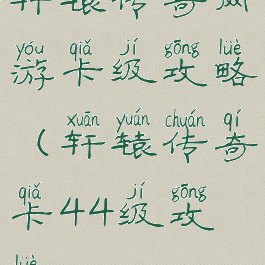 轩辕传奇威
yóu qiǎ jí gōng lüè
游卡级攻略
xuān yuán chuán qí
（轩辕传奇
qiǎ jí gōng
卡44级攻
lüè